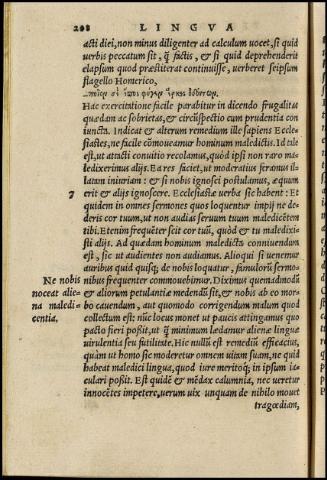 208 LINGVA
acti diei, non minus diligenter ad calculum uocet, si quid
uerbis peccatum sit, q̃ factis, & si quid deprehenderit
elapsum quod præstiterat continuisse, uerberet seipsum
flagello Homerico,
Hac exercitatione facile parabitur in dicendo frugalitas
quædam ac sobrietas, & circũspectio cum prudentia con
iuncta. Indicat & alterum remedium ille sapiens Eccle-
siastes, ne facile cõmoueamur hominum maledictis. Id tale
est, ut attacti conuitio recolamus, quòd ipsi non raro ma-
ledixerimus alijs. Ea res faciet, ut moderatius feramus il-
latam iniuriam: & si nobis ignosci postulamus, æquum
7 erit & alijs ignoscere. Ecclesiastæ uerba sic habent: Et
quidem in omnes sermones quos loquentur impij ne de-
deris cor tuum, ut non audias seruum tuum maledicẽtem
tibi. Etenim frequẽter scit cor tuũ, quòd & tu maledixi-
sti alijs. Ad quædam hominum maledicta conniuendum
est, sic ut audientes non audiamus. Alioqui si uenemur
auribus quid quisq; de nobis loquatur, famulorũ sermo-
Ne nobis nibus frequenter commouebimur. Diximus quemadmodũ
noceat alie- & aliorum petulantiæ medendũ sit, & nobis ab eo mor-
na maledi- bo cauendum, aut quomodo corrigendum malum quod
centia. collectum est: nũc locus monet ut paucis attingamus quo
pacto fieri possit, ut q̃ minimum lædamur alienæ linguæ
uirulentia seu futilitate. Hic nullũ est remediũ efficacius,
quàm ut homo sic moderetur omnem uitam suam, ne quid
habeat maledici lingua, quod iure meritoq; in ipsum ia-
culari possit. Est quidẽ & mẽdax calumnia, nec ueretur
innocẽtes impetere, uerum uix unquam de nihilo mouet
tragœdiam,